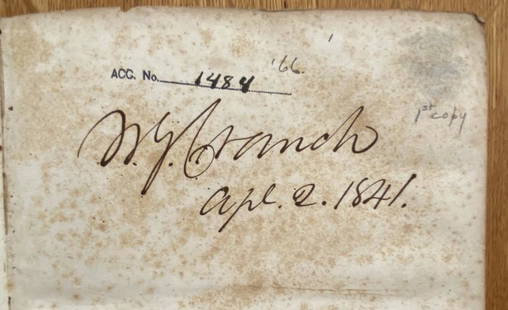 '66.
ACC. No. 1484
1st copy
W. G. Cranch
Apl. 2. 1841.